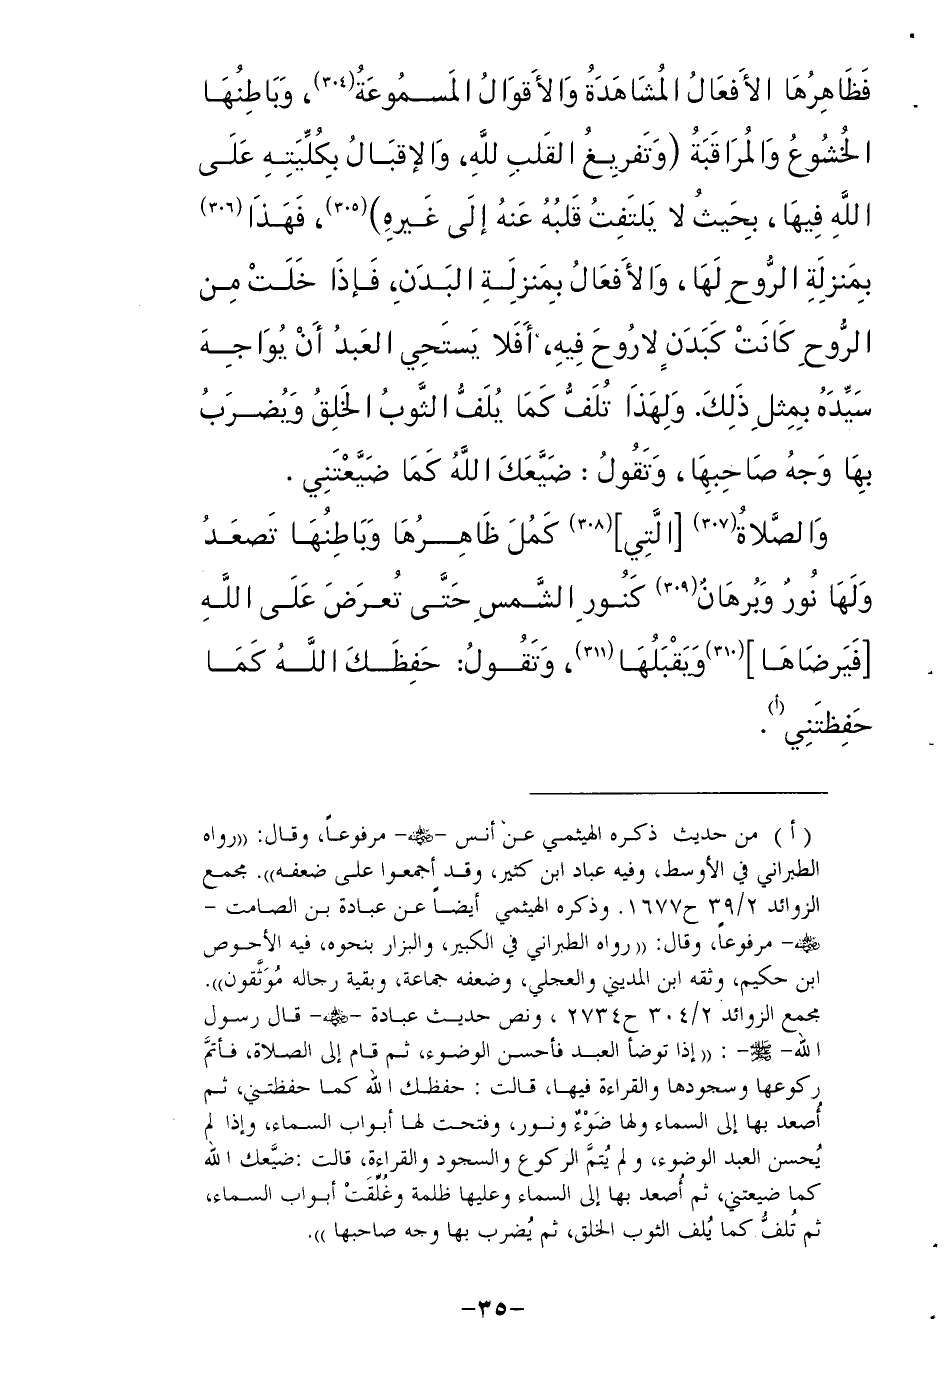 فَظَاهِرُهَا الأَفعَالُ المُشَاهَدَةُ وَالأَقوَالُ المَسمُوعَةُ(٣٠٤)، وَبَاطِنُهَا
الخُشُوعُ وَالمُرَاقَبَةُ (وَتَفرِيغُ القَلبِ للَّهِ، وَالإِقبَالُ بِكُلِّيَتِهِ عَلَى
اللَّهِ فِيهَا، بِحَيثُ لا يَلتَفِتُ قَلبُهُ عَنهُ إِلَى غَيرِهِ)(٣٠٥)، فَهَذَا(٣٠٦)
بِمَنزِلَةِ الرُّوحِ لَهَا، وَالأَفعَالُ بِمَنزِلَةِ البَدَنِ، فَإِذَا خَلَتْ مِن
الرُّوحِ كَانَتْ كَبَدَنٍ لارُوحَ فِيهِ، أَفَلا يَستَحِي العَبدُ أَنْ يُوَاجِهَ
سَيِّدَهُ بِمِثلِ ذَلِكَ. وَلِهَذَا تُلَفُّ كَمَا يُلَفُّ الثَّوبُ الخَلِقُ وَيُضرَبُ
بِهَا وَجهُ صَاحِبِهَا، وَتَقُولُ : ضَيَّعَكَ اللَّهُ كَمَا ضَيَّعْتَنِي .
وَالصَّلاةُ(٣٠٧) [الَّتِي](٣٠٨) كَمُلَ ظَاهِرُهَا وَبَاطِنُهَا تَصعَدُ
وَلَهَا نُورٌ وَبُرهَانٌ(٣٠٩) كَنُورِ الشَّمسِ حَتَّى تُعرَضَ عَلَى اللَّهِ
[فَيَرضَاهَا](٣١٠)وَيَقْبَلُهَا(٣١١)، وَتَقُولُ: حَفِظَكَ اللَّهُ كَمَا
حَفِظتَنِي(أ).
( أ ) من حديث ذكره الهيثمي عن أنس -رضي الله عنه- مرفوعاً، وقال: ((رواه
الطبراني في الأوسط، وفيه عباد ابن كثير، وقد أجمعوا على ضعفه)). مجمع
الزوائد ٣٩/٢ ح١٦٧٧. وذكره الهيثمي أيضاً عن عبادة بن الصامت -
رضي الله عنه- مرفوعاً، وقال: ((رواه الطبراني في الكبير، والبزار بنحوه، فيه الأحوص
ابن حكيم، وثقه ابن المديني والعجلي، وضعفه جماعة، وبقية رجاله مُوَثَّقون)).
مجمع الزوائد ٣٠٤/٢ ح٢٧٣٤ ، ونص حديث عبادة -رضي الله عنه- قال رسول
الله- ﷺ- : ((إذا توضأ العبد فأحسن الوضوء، ثم قام إلى الصلاة، فأتمَّ
ركوعها وسجودها والقراءة فيها، قالت : حفظك الله كما حفظتني، ثم
أُصعد بها إلى السماء ولها ضَوْءٌ ونور، وفتحت لها أبواب السماء، وإذا لم
يُحسن العبد الوضوء، ولم يُتمَّ الركوع والسجود والقراءة، قالت :ضيَّعك الله
كما ضيعتني، ثم أُصعد بها إلى السماء وعليها ظلمة وغُلِّقتْ أبواب السماء،
ثم تُلفُّ كما يُلف الثوب الخلق، ثم يُضرب بها وجه صاحبها )).
-٣٥-